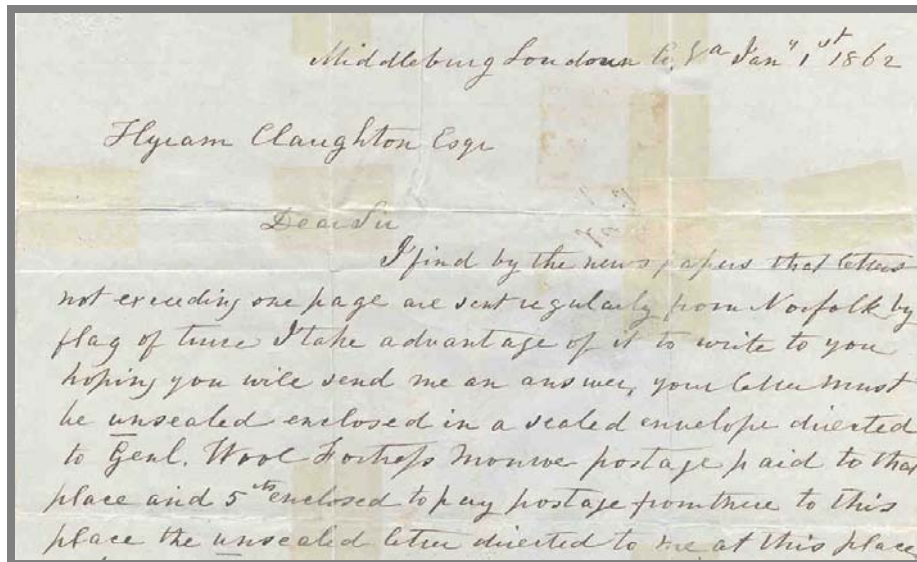 Middleburg Loudoun Co, Va Jany 1st 1862
Hyram Claughton Esqr
Dear Sir
I find by the news papers that letters
not exceeding one page are sent regularly from Norfolk by
flag of truce I take advantage of it to write to you
hoping you will send me an answer, your letter must
be unsealed enclosed in a sealed envelope directed
to Genl. Wool Fortress Monroe postage paid to that
place and 5 cts enclosed to pay postage from there to this
place the unsealed letter directed to me at this place